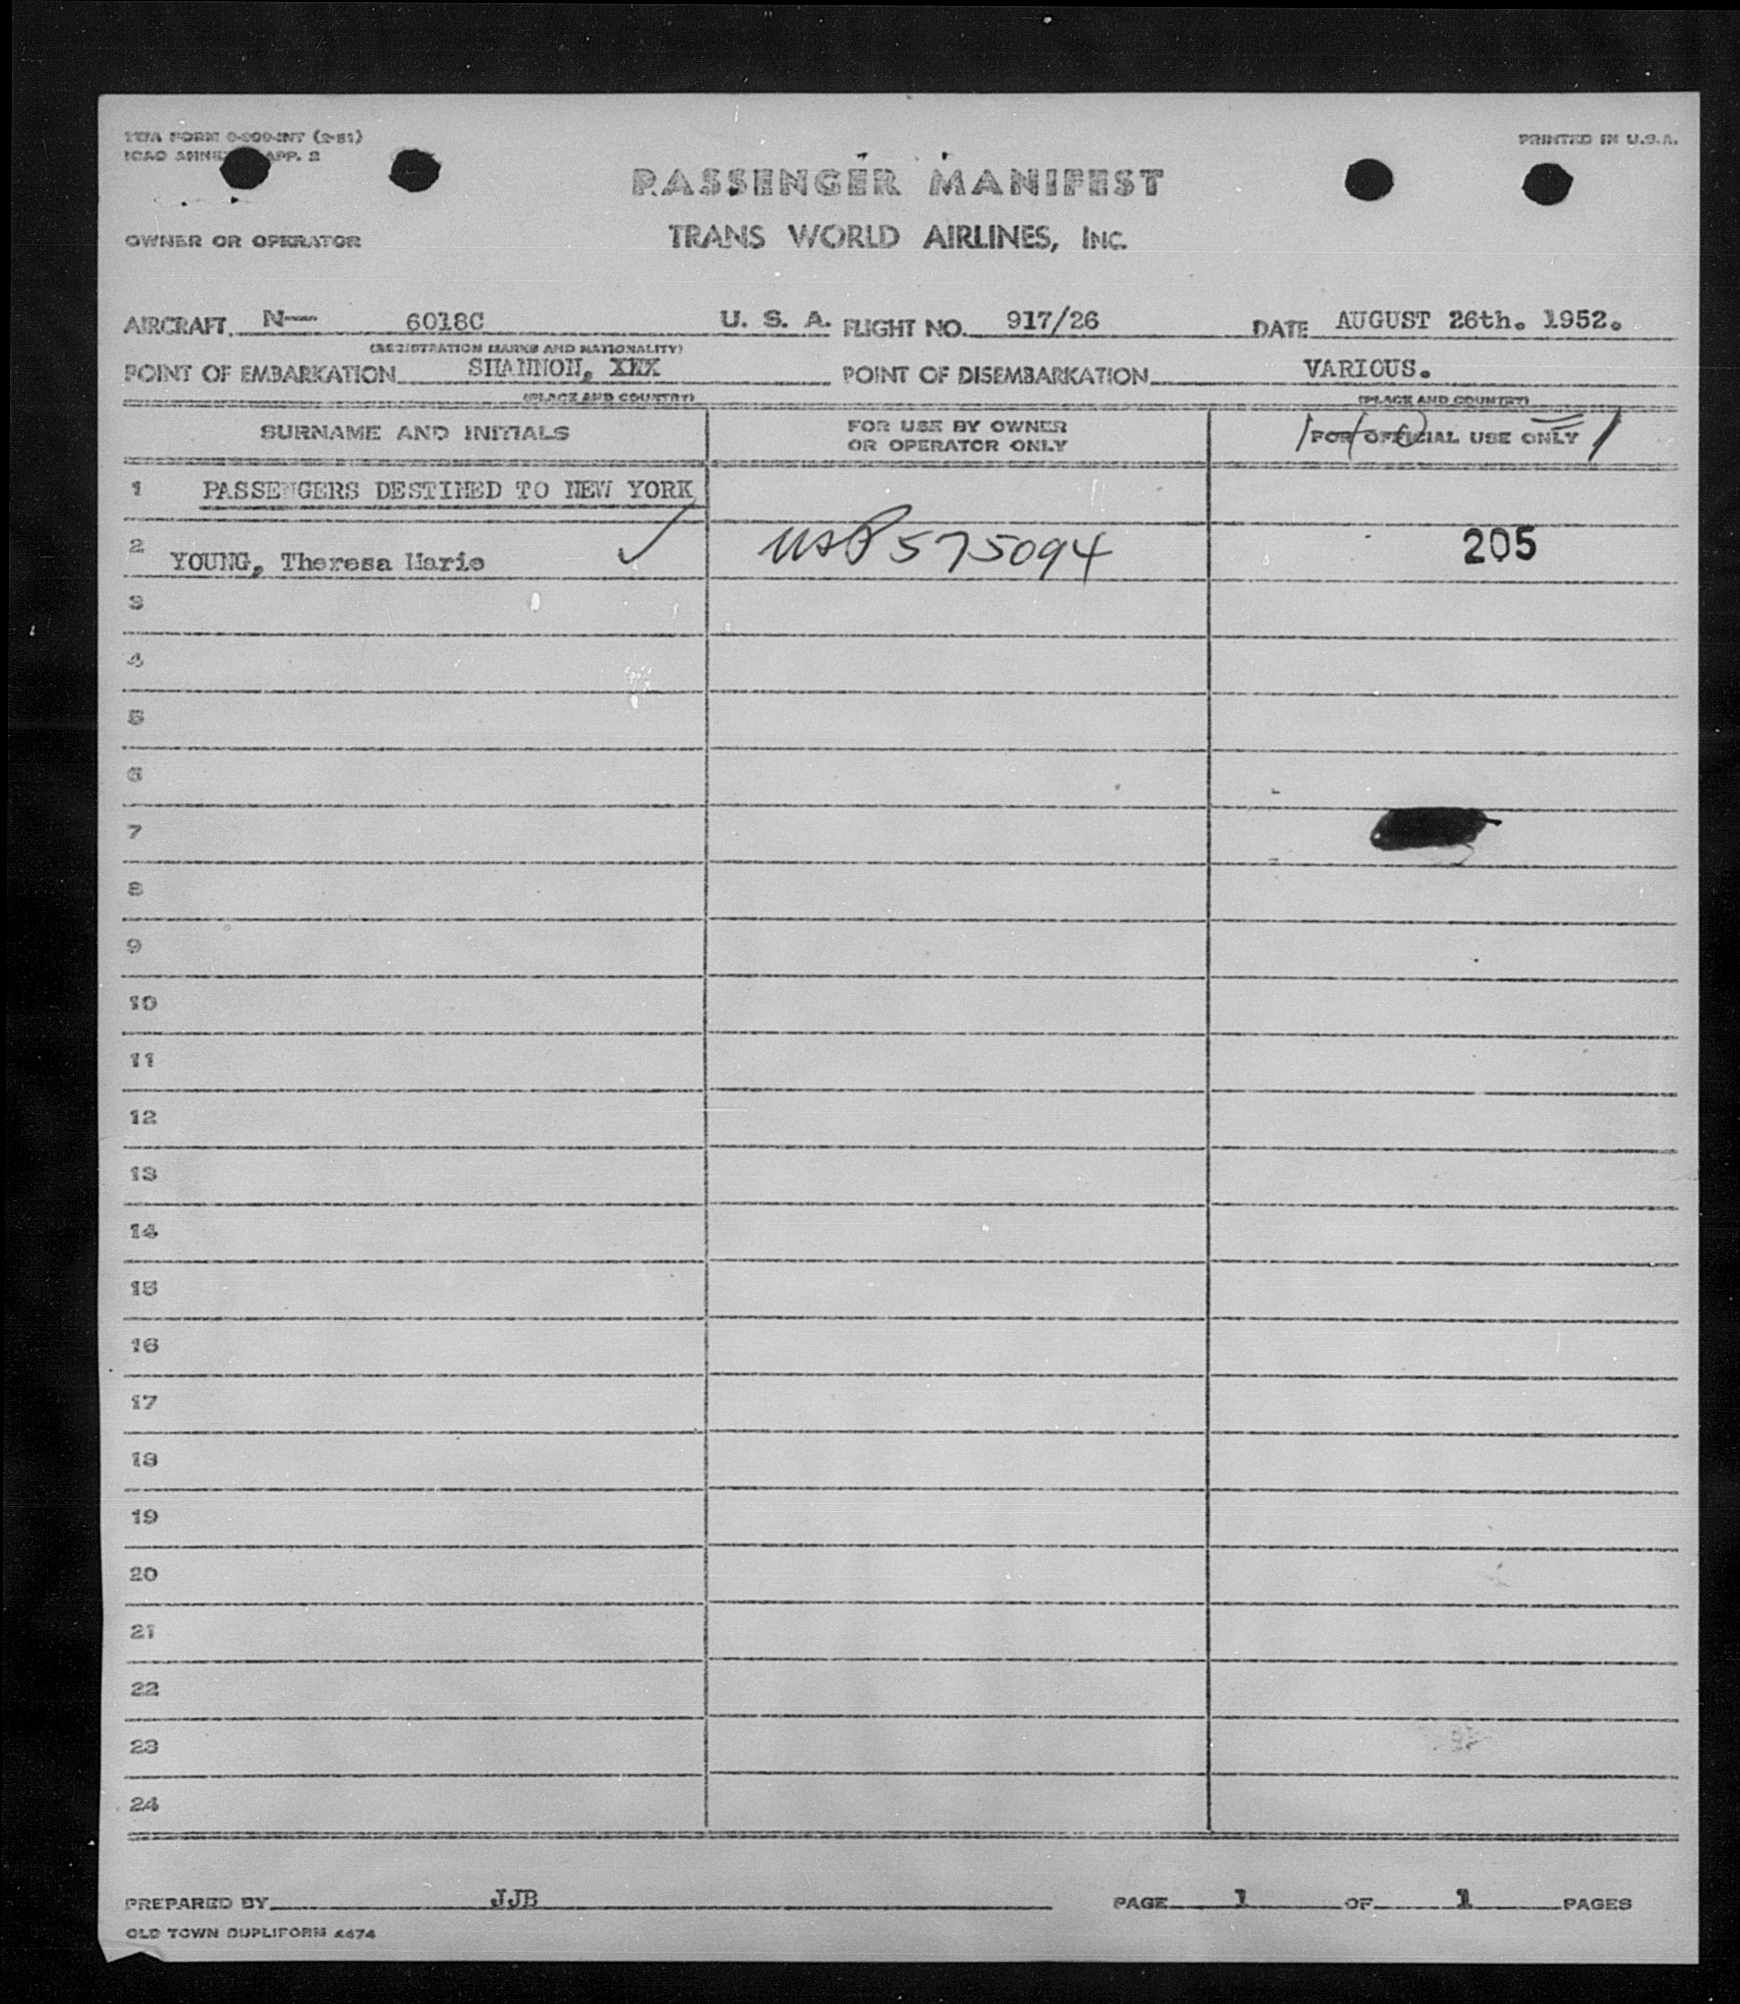 TWA FORM O-200-INT (2-51)
PRINTED IN U.S.A.
ICAO ANNEX APP. 2
PASSENGER MANIFEST
OWNER OR OPERATOR TRANS WORLD AIRLINES, INC.
AIRCRAFT N— 6018C U. S. A. FLIGHT NO. 917/26 DATE AUGUST 26th. 1952.
(REGISTRATION MARKS AND NATIONALITY)
POINT OF EMBARKATION SHANNON, XXX POINT OF DISEMBARKATION VARIOUS.
(PLACE AND COUNTRY) (PLACE AND COUNTRY)
SURNAME AND INITIALS FOR USE BY OWNER OR OPERATOR ONLY FOR OFFICIAL USE ONLY
1 PASSENGERS DESTINED TO NEW YORK
2 YOUNG, Theresa Marie ✓ USP 575094 205
3
4
5
6
7
8
9
10
11
12
13
14
15
16
17
18
19
20
21
22
23
24
PREPARED BY JJB PAGE 1 OF 1 PAGES
OLD TOWN DUPLIFORM 4474